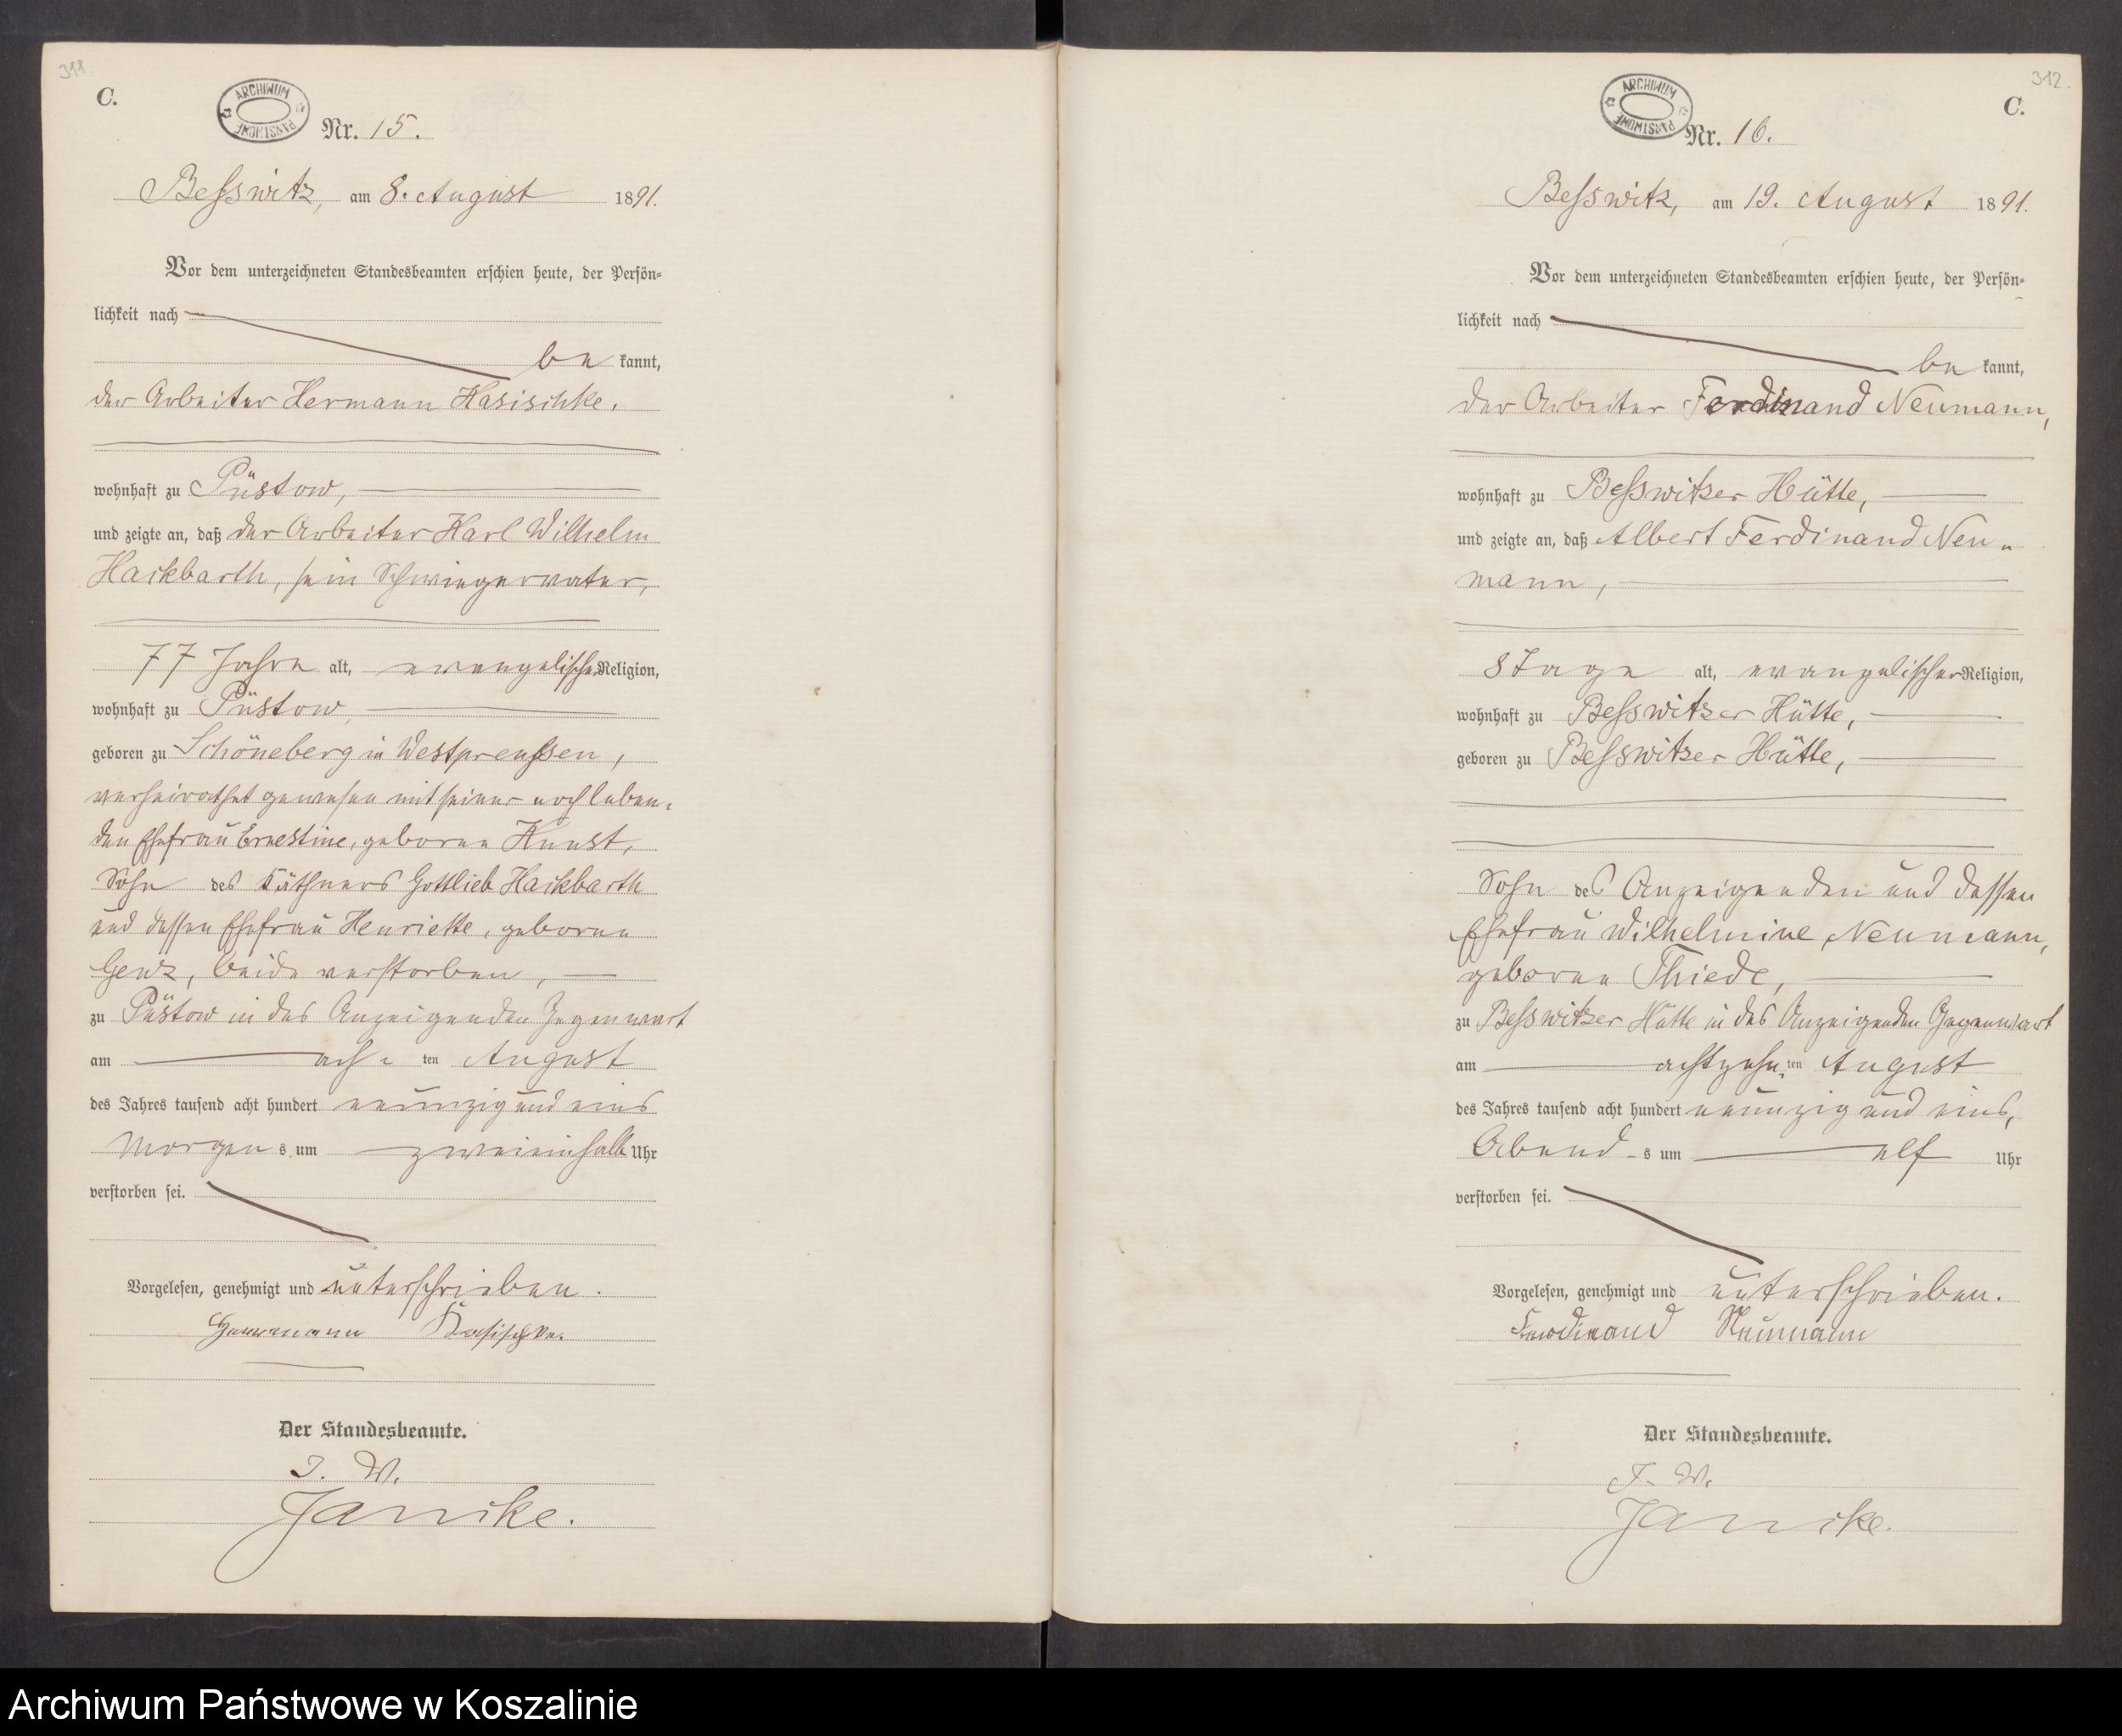 311.
C.
ARCHIWUM PAŃSTWOWE
Nr. 15.
Beſswitz, am 8. August 1891.
Vor dem unterzeichneten Standesbeamten erschien heute, der Persön-
lichkeit nach
be kannt,
der Arbeiter Hermann Kasischke,
wohnhaft zu Püstow,
und zeigte an, daß der Arbeiter Karl Wilhelm
Hackbarth, sein Schwiegervater,
77 Jahre alt, evangelischer Religion,
wohnhaft zu Püstow,
geboren zu Schöneberg in Westpreuſsen,
verheirathet gewesen mit seiner noch leben-
den Ehefrau Ernestine, geborene Kunst,
Sohn des Käthners Gottlieb Hackbarth
und dessen Ehefrau Henriette, geborene
Genz, beide verstorben,
zu Püstow in des Anzeigenden Gegenwart
am ach-ten August
des Jahres tausend acht hundert neunzig und eins
Morgens um zweieinhalb Uhr
verstorben sei.
Vorgelesen, genehmigt und unterschrieben.
Hermann Kasischke.
Der Standesbeamte.
I. V.
Janike.
312.
C.
ARCHIWUM PAŃSTWOWE
Nr. 16.
Beſswitz, am 19. August 1891.
Vor dem unterzeichneten Standesbeamten erschien heute, der Persön-
lichkeit nach
be kannt,
der Arbeiter Ferdinand Neumann,
wohnhaft zu Beſswitzer Hütte,
und zeigte an, daß Albert Ferdinand Neu-
mann,
8 Tage alt, evangelischer Religion,
wohnhaft zu Beſswitzer Hütte,
geboren zu Beſswitzer Hütte,
Sohn des Anzeigenden und dessen
Ehefrau Wilhelmine Neumann,
geborene Thiede,
zu Beſswitzer Hütte in des Anzeigenden Gegenwart
am achtzehn-ten August
des Jahres tausend acht hundert neunzig und eins,
Abend-s um elf Uhr
verstorben sei.
Vorgelesen, genehmigt und unterschrieben.
Ferdinand Neumann
Der Standesbeamte.
I. V.
Janike.
Archiwum Państwowe w Koszalinie